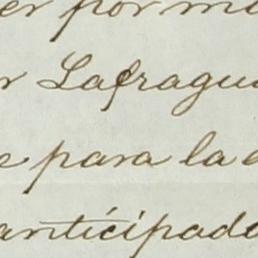 er por m
r Lafragu
e para la
anticipado